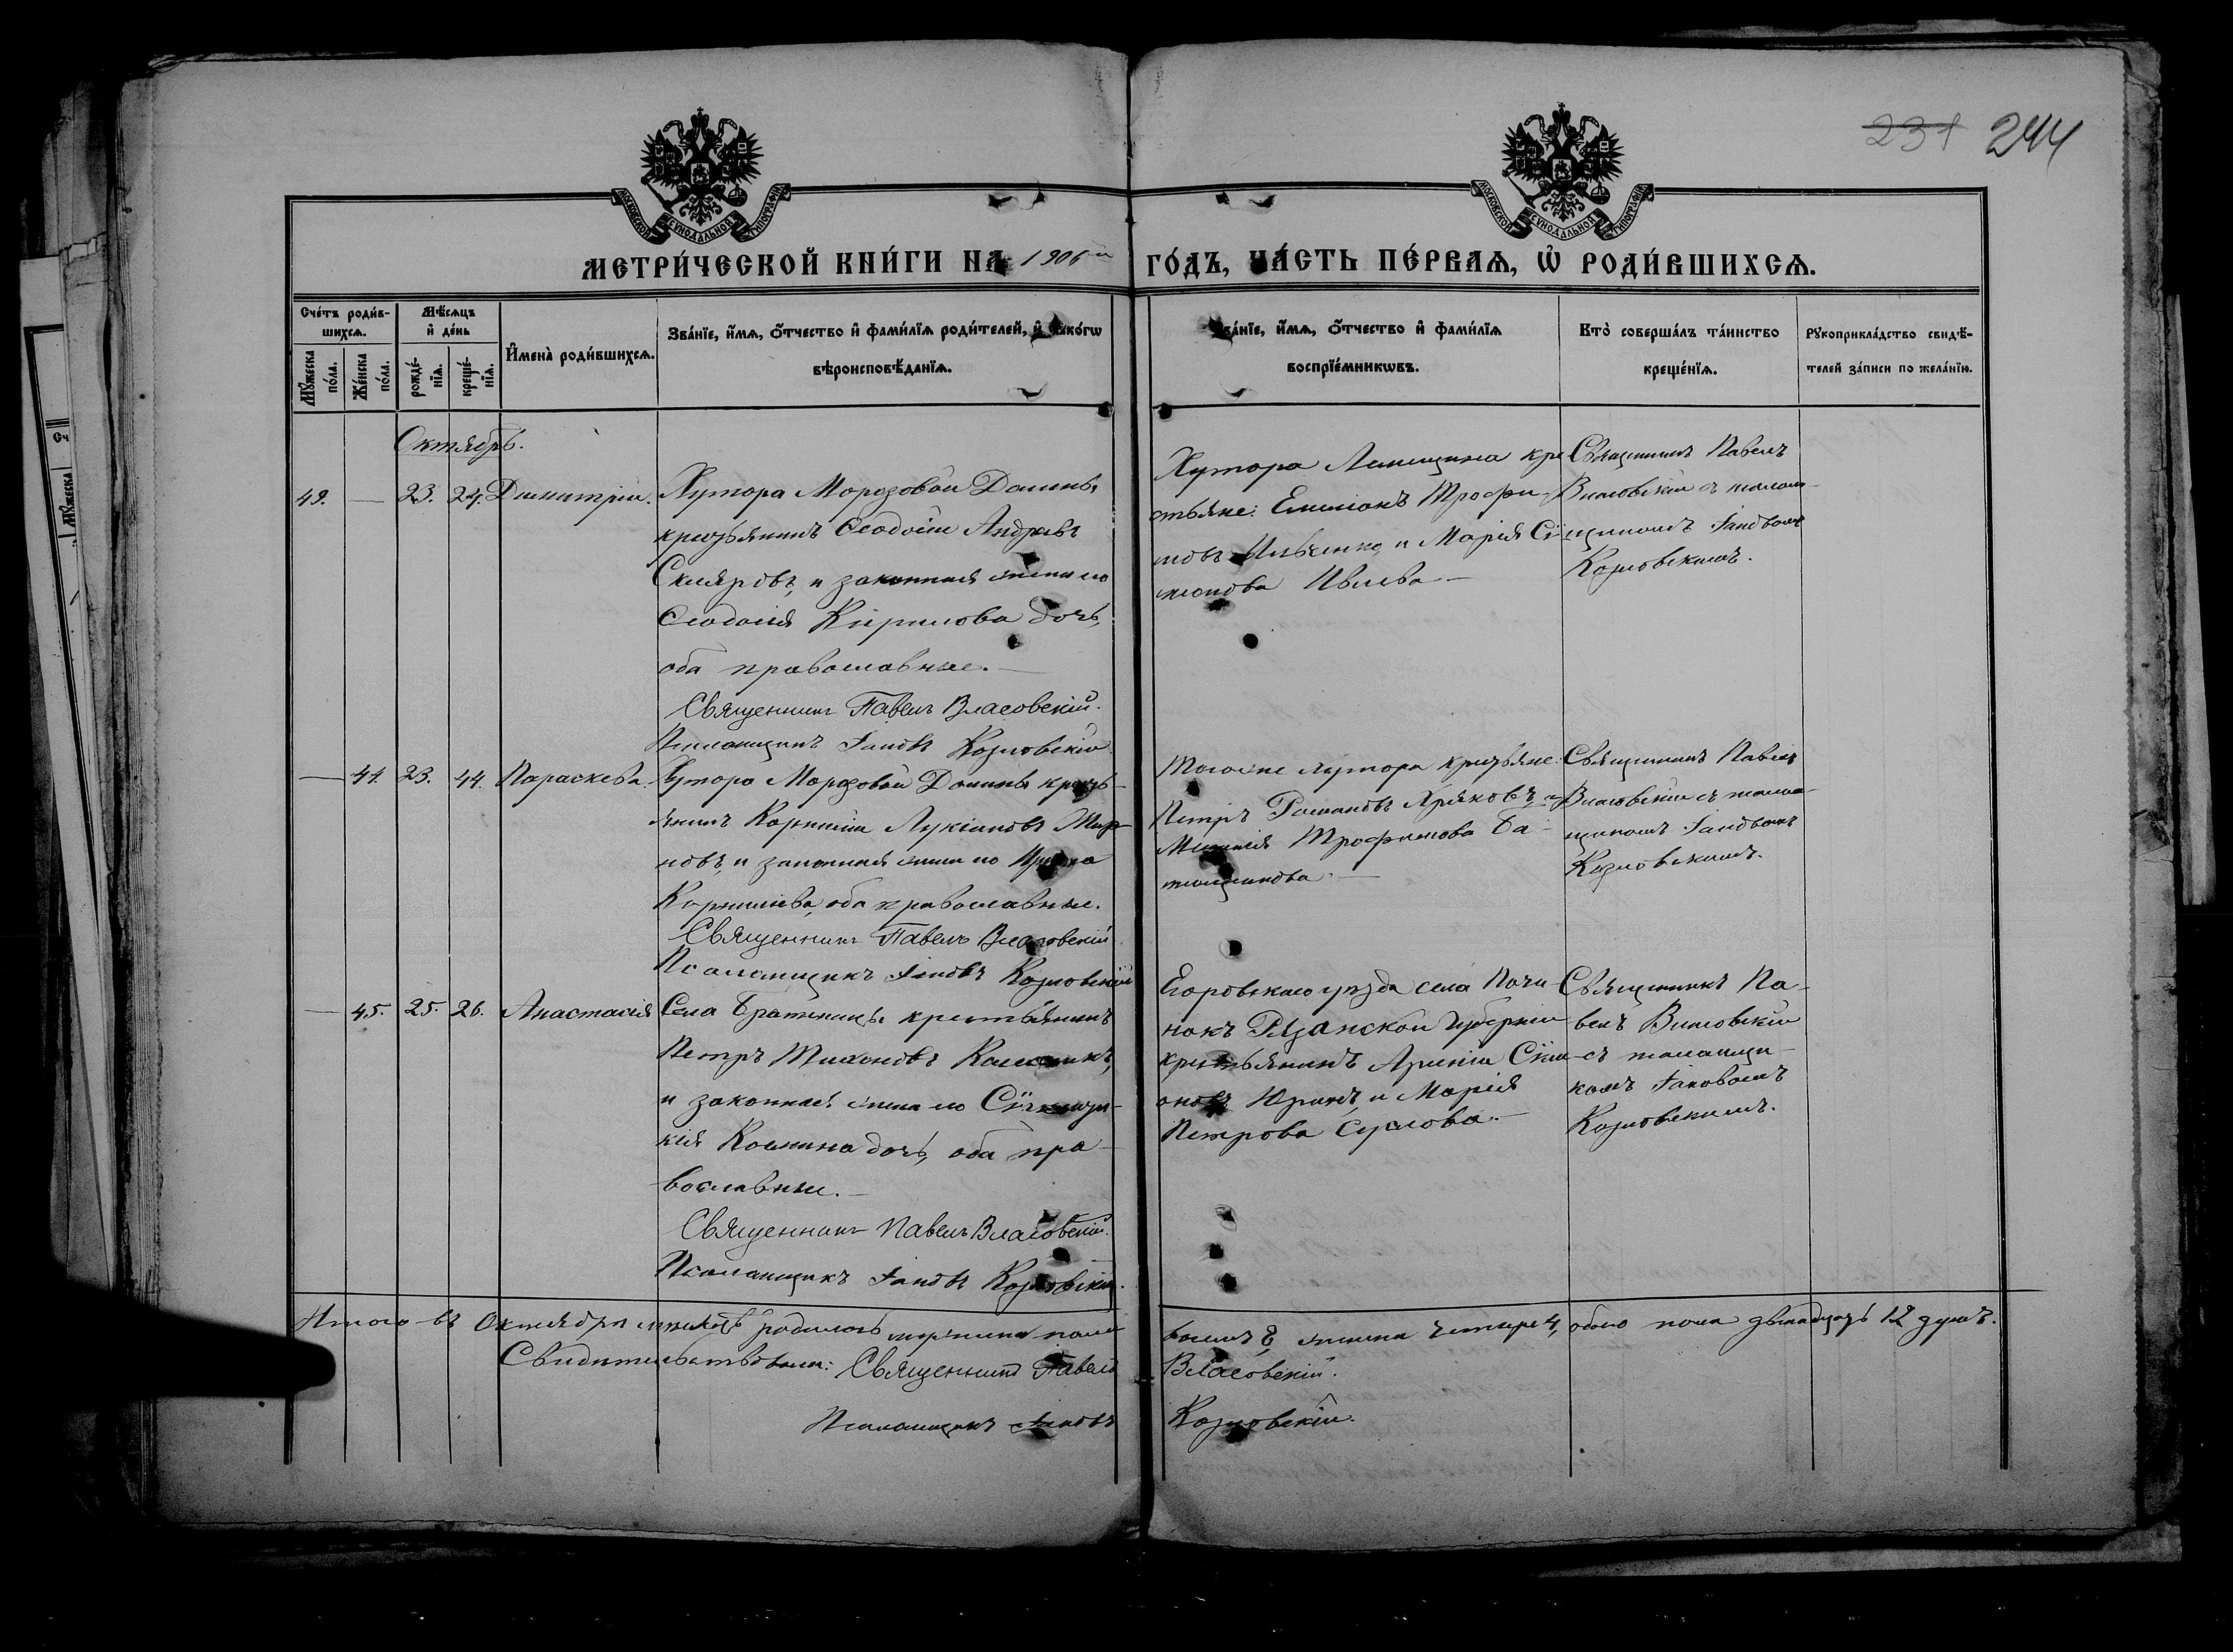 231 244
МОСКОВСКОЙ СѴНОДАЛЬНОЙ ТИПОГРАФІИ
МОСКОВСКОЙ СѴНОДАЛЬНОЙ ТИПОГРАФІИ
МЕТРИ́ЧЕСКОЙ КНИ́ГИ НА 1906й ГО́ДЪ, ЧА́СТЬ ПЕ́РВАѦ, Ѡ҆ РОДИ́ВШИХСѦ.
Сче́тъ роди́в-
шихсѧ.
Мꙋ́жеска по́ла.
Же́нска по́ла.
Мѣ́сѧцъ
и҆ де́нь
рожде́-
нїѧ.
креще́-
нїѧ.
И҆мена̀ роди́вшихсѧ.
Зва́нїе, и҆́мѧ, ѻ҆́тчество и҆ фами́лїѧ роди́телей, и҆ како́гѡ
вѣроисповѣ́данїѧ.
Зва́нїе, и҆́мѧ, ѻ҆́тчество и҆ фами́лїѧ
воспрїе́мникѡвъ.
Кто̀ соверша́лъ та́инство
креще́нїѧ.
Рꙋкоприкла́дство свидѣ́-
телей за́писи по жела́нїю.
Октябрь.
49. — 23. 24. Димитрій.
Хутора Морозовой Долины
крестьянинъ Ѳеодосій Андреевъ
Скляровъ, и законная жена его
Ѳеодосія Кирилова дочь,
оба православные.—
Священникъ Павелъ Власовскій.
Псаломщикъ Іаковъ Козловскій
Хутора кре
стьяне: Емиліанъ Трофи-
мовъ Ильченко и Марія Си-
меонова Ивлева —
Священникъ Павелъ
Власовскій съ псалом-
щикомъ Іаковомъ
Козловскимъ.
— 44. 23. 44. Параскева.
Хутора Морозовой Долины кресть-
янинъ Корнилій Лукіановъ
и законная жена его
Корнилиева, оба православные.
Священникъ Павелъ Власовскій
Псаломщикъ Іаковъ Козловскій
Того же хутора крестьяне:
Петръ Романовъ Хряковъ и
Трофимова Ба-
Священникъ Павелъ
Власовскій съ псалом-
щикомъ Іаковомъ
Козловскимъ.
— 45. 25. 26. Анастасія
Села Братеницы крестьянинъ
Петръ Тихоновъ
и законная жена его Сѵнклити-
кія Космина дочь, оба пра-
вославные.—
Священникъ Павелъ Власовскій.
Псаломщикъ Іаковъ Козловскій.
Егоровскаго уѣзда села Почи-
нокъ Рязанской Губерніи
крестьянинъ Симе-
оновъ Юринъ, и Марія
Петрова Суслова.—
Священникъ Па-
велъ Власовскій
съ псаломщи-
комъ Іаковомъ
Козловскимъ.
Итого въ Октябрѣ мѣсяцѣ родилось мужеска пола восемь 8, женска четыре 4, обоего пола двѣнадцать 12 душъ.
Свидѣтельствовали: Священникъ Павелъ Власовскій.
Псаломщикъ Іаковъ Козловскій.